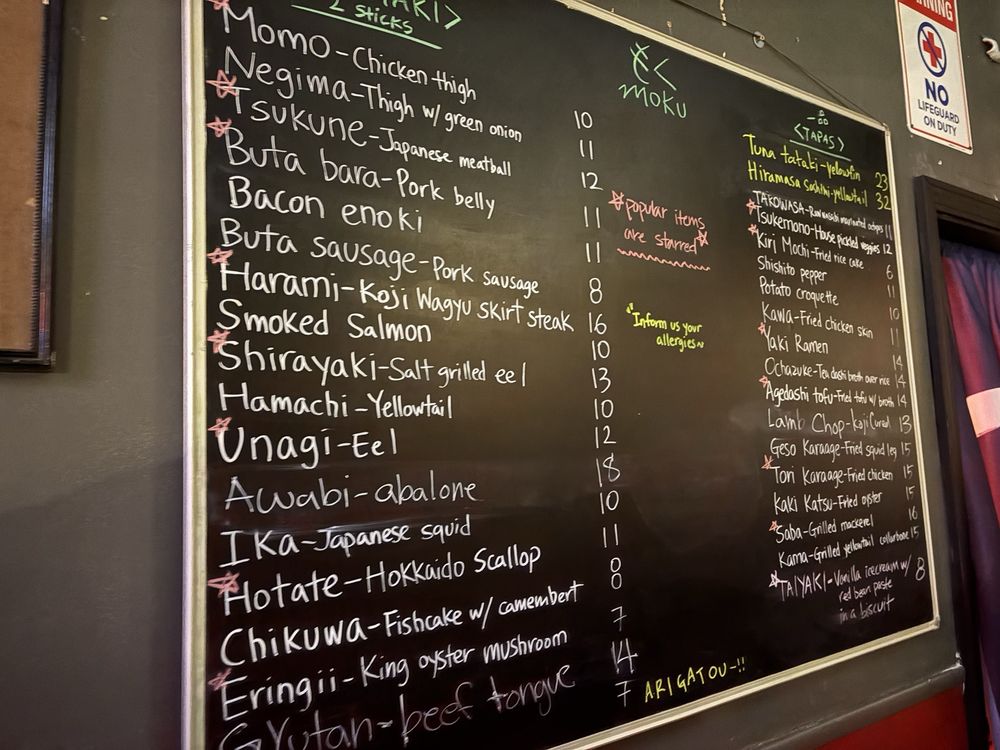 AKI>
2 sticks
Momo-Chicken thigh 10
Negima-Thigh w/ green onion 11
Tsukune-Japanese meatball 12
Buta bara-Pork belly 11
Bacon enoki 11
Buta sausage-Pork sausage 8
Harami-Koji Wagyu skirt steak 16
Smoked Salmon 10
Shirayaki-Salt grilled eel 13
Hamachi-Yellowtail 10
Unagi-Eel 12
Awabi-abalone 18
Ika-Japanese squid 10
Hotate-Hokkaido Scallop 11
Chikuwa-Fishcake w/ camembert 8
Eringii-King oyster mushroom 7
Gyutan-beef tongue 14
7
moku
☆popular items
are starred☆
"Inform us your
allergies~
ARIGATOU~!!
<TAPAS>
Tuna tataki-yellowfin 23
Hiramasa Sashimi-yellowtail 32
TAKOWASA-Raw wasabi marinated octopus 11
Tsukemono-House pickled veggies 12
Kiri Mochi-Fried rice cake 6
Shishito pepper 11
Potato croquette 10
Kawa-Fried chicken skin 11
Yaki Ramen 14
Ochazuke-Tea dashi broth over rice 14
Agedashi tofu-Fried tofu w/ broth 14
Lamb Chop-koji Cured 13
Geso Karaage-Fried squid leg 15
Tori Karaage-Fried chicken 15
Kaki Katsu-Fried oyster 15
Saba-Grilled mackerel 16
Kama-Grilled yellowtail collarbone 15
TAIYAKI-Vanilla icecream w/ 8
red bean paste
in a biscuit
WARNING
NO
LIFEGUARD
ON DUTY